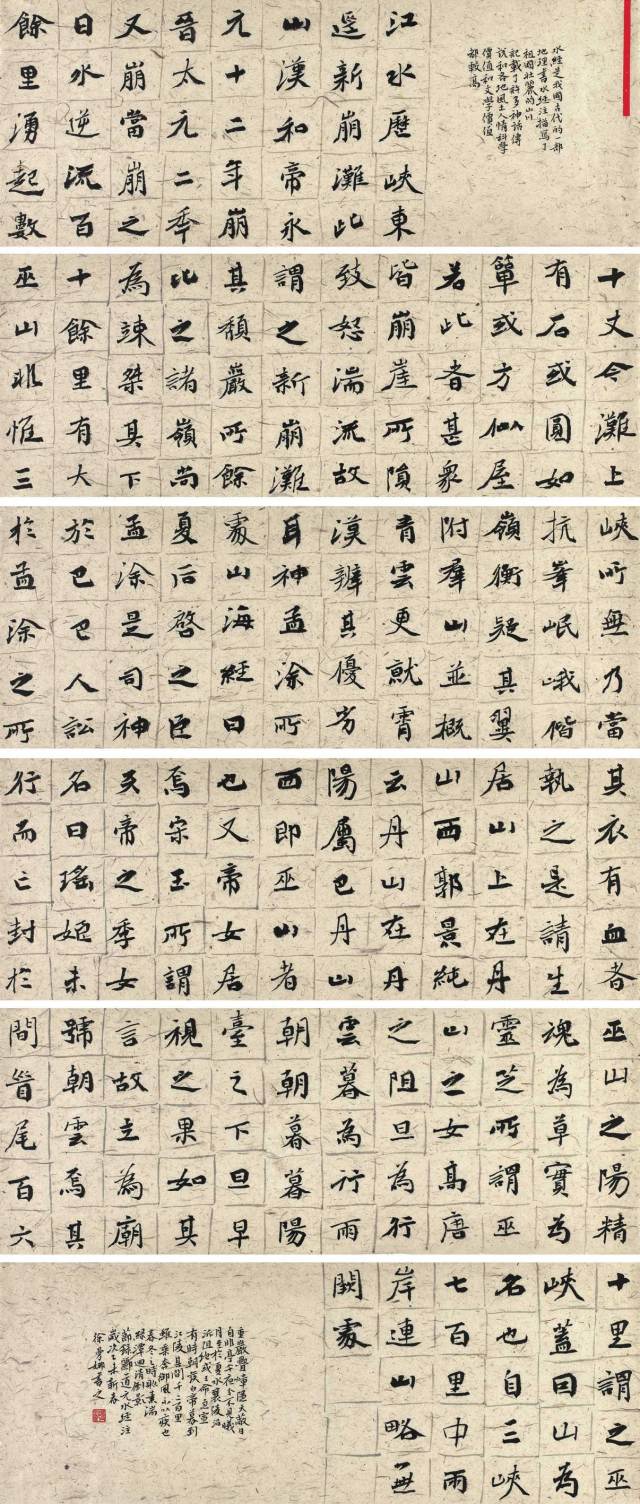 水經是我國古代的一部
地理書水經注描寫了
祖國壯麗的山川
記載了許多神話傳
說和各地風土人情科學
價值和文學價值
都較高
江水歷峽東
逕新崩灘此
山漢和帝永
元十二年崩
晉太元二年
又崩當崩之
日水逆流百
餘里湧起數
十丈今灘上
有石或圓如
簞或方似屋
若此者甚衆
皆崩崖所隕
致怒湍流故
謂之新崩灘
其頹巖所餘
比之諸嶺尚
為竦桀其下
十餘里有大
巫山非惟三
峽所無乃當
抗峯岷峨偕
嶺衡疑其翼
附羣山並概
青雲更就霄
漢辨其優劣
耳神孟涂所
處山海經曰
夏后啓之臣
孟涂是司神
於巴巴人訟
於孟涂之所
其衣有血者
執之是請生
居山上在丹
山西郭景純
云丹山在丹
陽屬巴丹山
西即巫山者
也又帝女居
焉宋玉所謂
天帝之季女
名曰瑤姬未
行而亡封於
巫山之陽精
魂為草實為
靈芝所謂巫
山之女高唐
之阻旦為行
雲暮為行雨
朝朝暮暮陽
臺之下旦早
視之果如其
言故立為廟
號朝雲焉其
間首尾百六
十里謂之巫
峽蓋因山為
名也自三峽
七百里中兩
岸連山略無
闕處
重巖疊嶂隱天蔽日
自非亭午夜分不見曦
月至於夏水襄陵沿
泝阻絕或王命急宣
有時朝發白帝暮到
江陵其間千二百里
雖乘奔御風不以疾也
春冬之時則素湍
綠潭回清倒影
節錄酈道元水經注
歲次乙未新春
徐夢娜書之